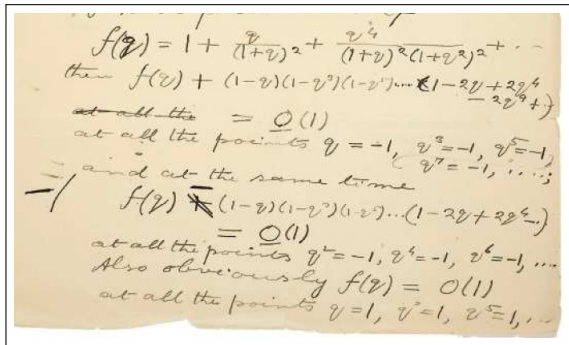 f(q) = 1 + q/(1+q)² + q⁴/((1+q)²(1+q²)²) + ...
then f(q) + (1-q)(1-q³)(1-q⁵)....(1-2q+2q⁴
- 2q⁹ + ..)
at all the = O(1)
at all the points q = -1, q³ = -1, q⁵ = -1,
q⁷ = -1, ....;
and at the same time
f(q) - (1-q)(1-q³)(1-q⁵)...(1-2q+2q⁴...)
= O(1)
at all the points q² = -1, q⁴ = -1, q⁶ = -1, ...
Also obviously f(q) = O(1)
at all the points q = 1, q³ = 1, q⁵ = 1, ...